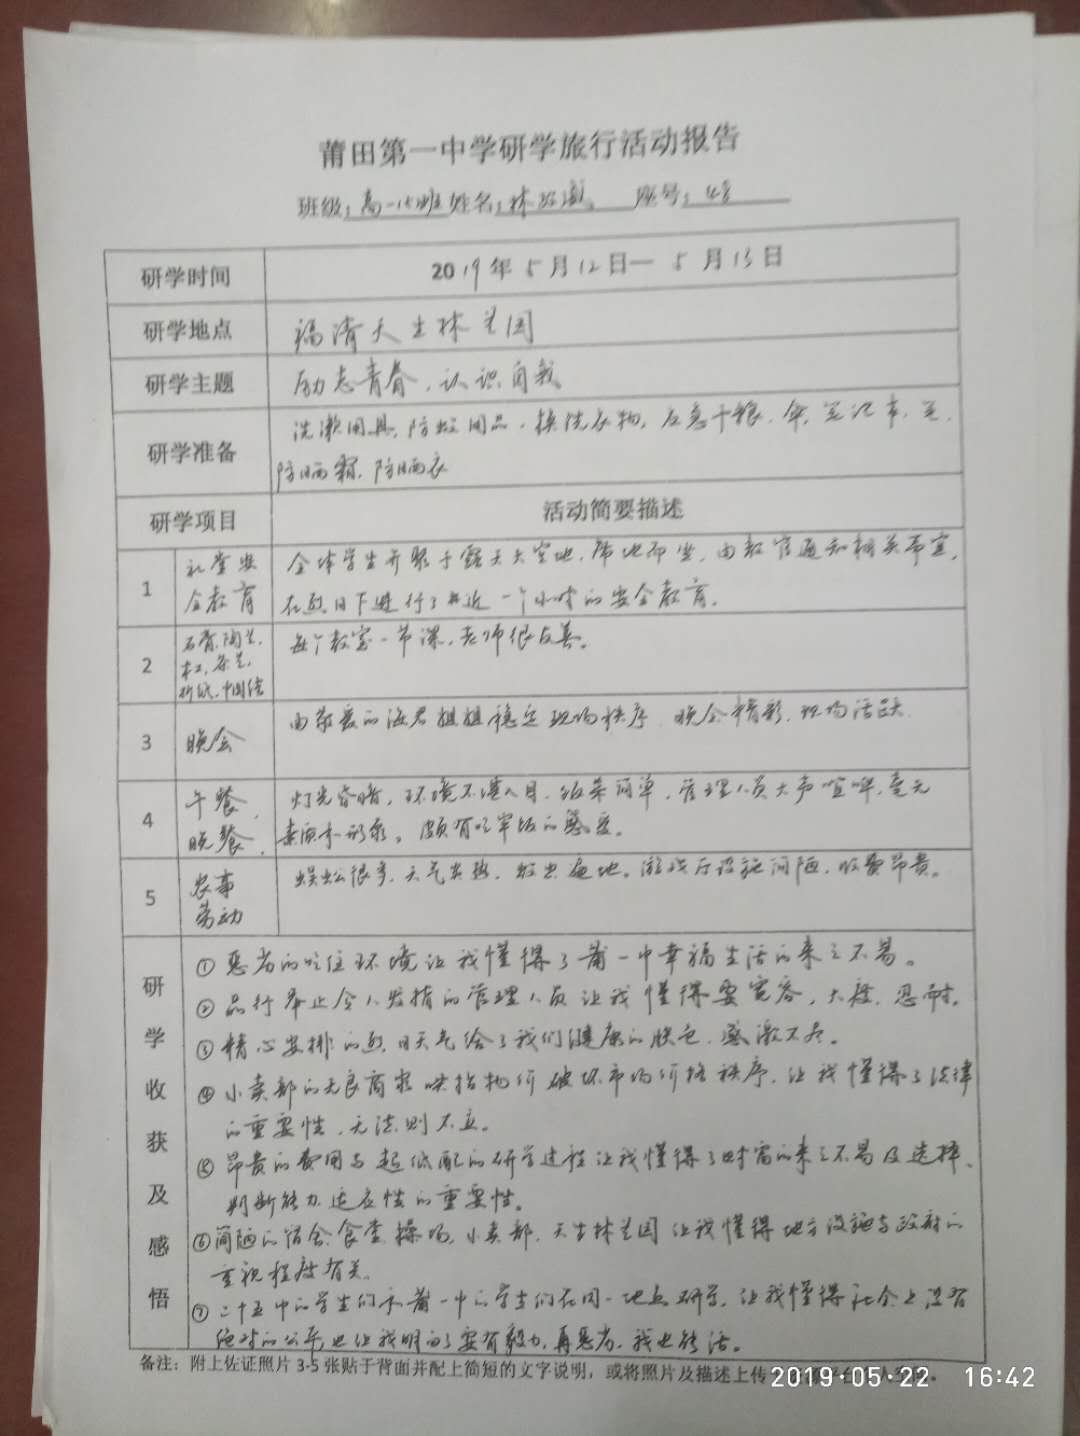 莆田第一中学研学旅行活动报告
班级:高一15班 姓名:林 座号:48
研学时间 2019年5月12日—5月13日
研学地点 福清天生林艺园
研学主题 励志青春,认识自我
研学准备 洗漱用具,防蚊用品,换洗衣物,应急干粮,伞,笔记本,笔,
防晒霜,防晒衣
研学项目 活动简要描述
1 礼堂安全教育 全体学生齐聚于露天大空地,席地而坐,由教官通知相关事宜,
在烈日下进行了近一个小时的安全教育。
2 石膏,陶艺,木工,茶艺,折纸,中国结 每个教室一节课,老师很友善。
3 晚会 由敬爱的海君姐姐稳定现场秩序,晚会精彩,现场活跃.
4 午餐,晚餐. 灯光昏暗,环境不堪入目,饭菜简单,管理人员大声喧哗,毫无
素质和形象。颇有吃牢饭的感受。
5 农事劳动 蜈蚣很多,天气炎热,蚊虫遍地。游戏厅设施简陋,收费昂贵。
研学收获及感悟
① 恶劣的吃住环境让我懂得了莆一中幸福生活的来之不易。
② 品行举止令人发指的管理人员让我懂得要宽容,大程,忍耐。
③ 精心安排的烈日天气给了我们健康的肤色,感激不尽。
④ 小卖部的无良商家哄抬物价破坏市场价格秩序,让我懂得了法律
的重要性,无法则不立。
⑤ 昂贵的费用与超低配的研学过程让我懂得了财富的来之不易及选择、
判断能力适应性的重要性。
⑥ 简陋的宿舍,食堂,操场,小卖部,天生林艺园让我懂得地方设施与政府的
重视程度有关。
⑦ 二十五中的学生们和莆一中的学生们在同一地点研学,让我懂得社会上没有
绝对的公平,也让我明白了要有毅力,再恶劣,我也能活。
备注:附上佐证照片3-5张贴于背面并配上简短的文字说明,或将照片及描述上传
2019·05·22 16:42